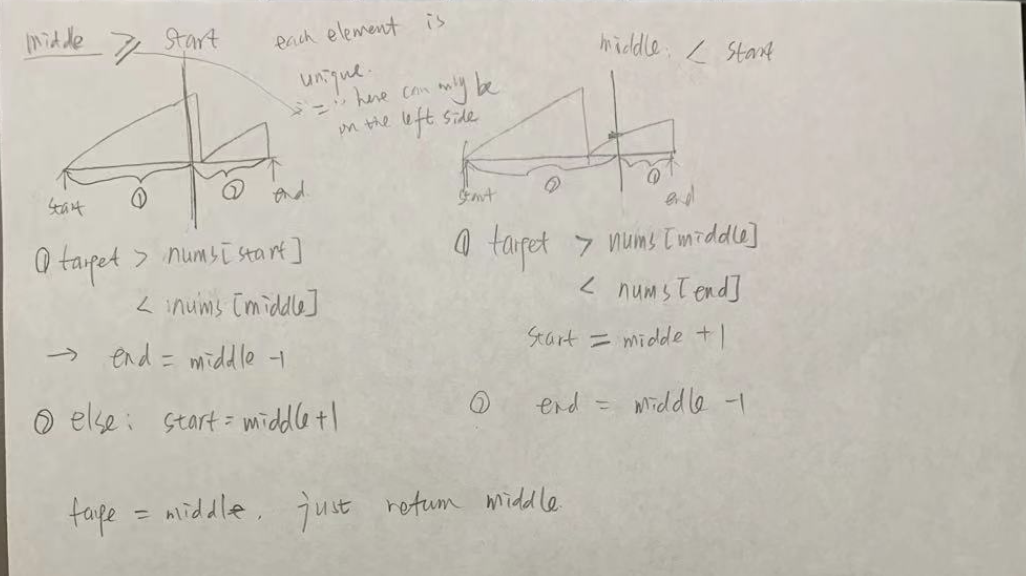 middle ≥ start
each element is
unique.
"=" here can only be
in the left side
start ① ② end
① target > nums[start]
< nums[middle]
→ end = middle -1
② else: start = middle+1
middle. < start
start ② ① end
① target > nums[middle]
< nums[end]
start = midde +1
② end = middle -1
= middle. just return middle.